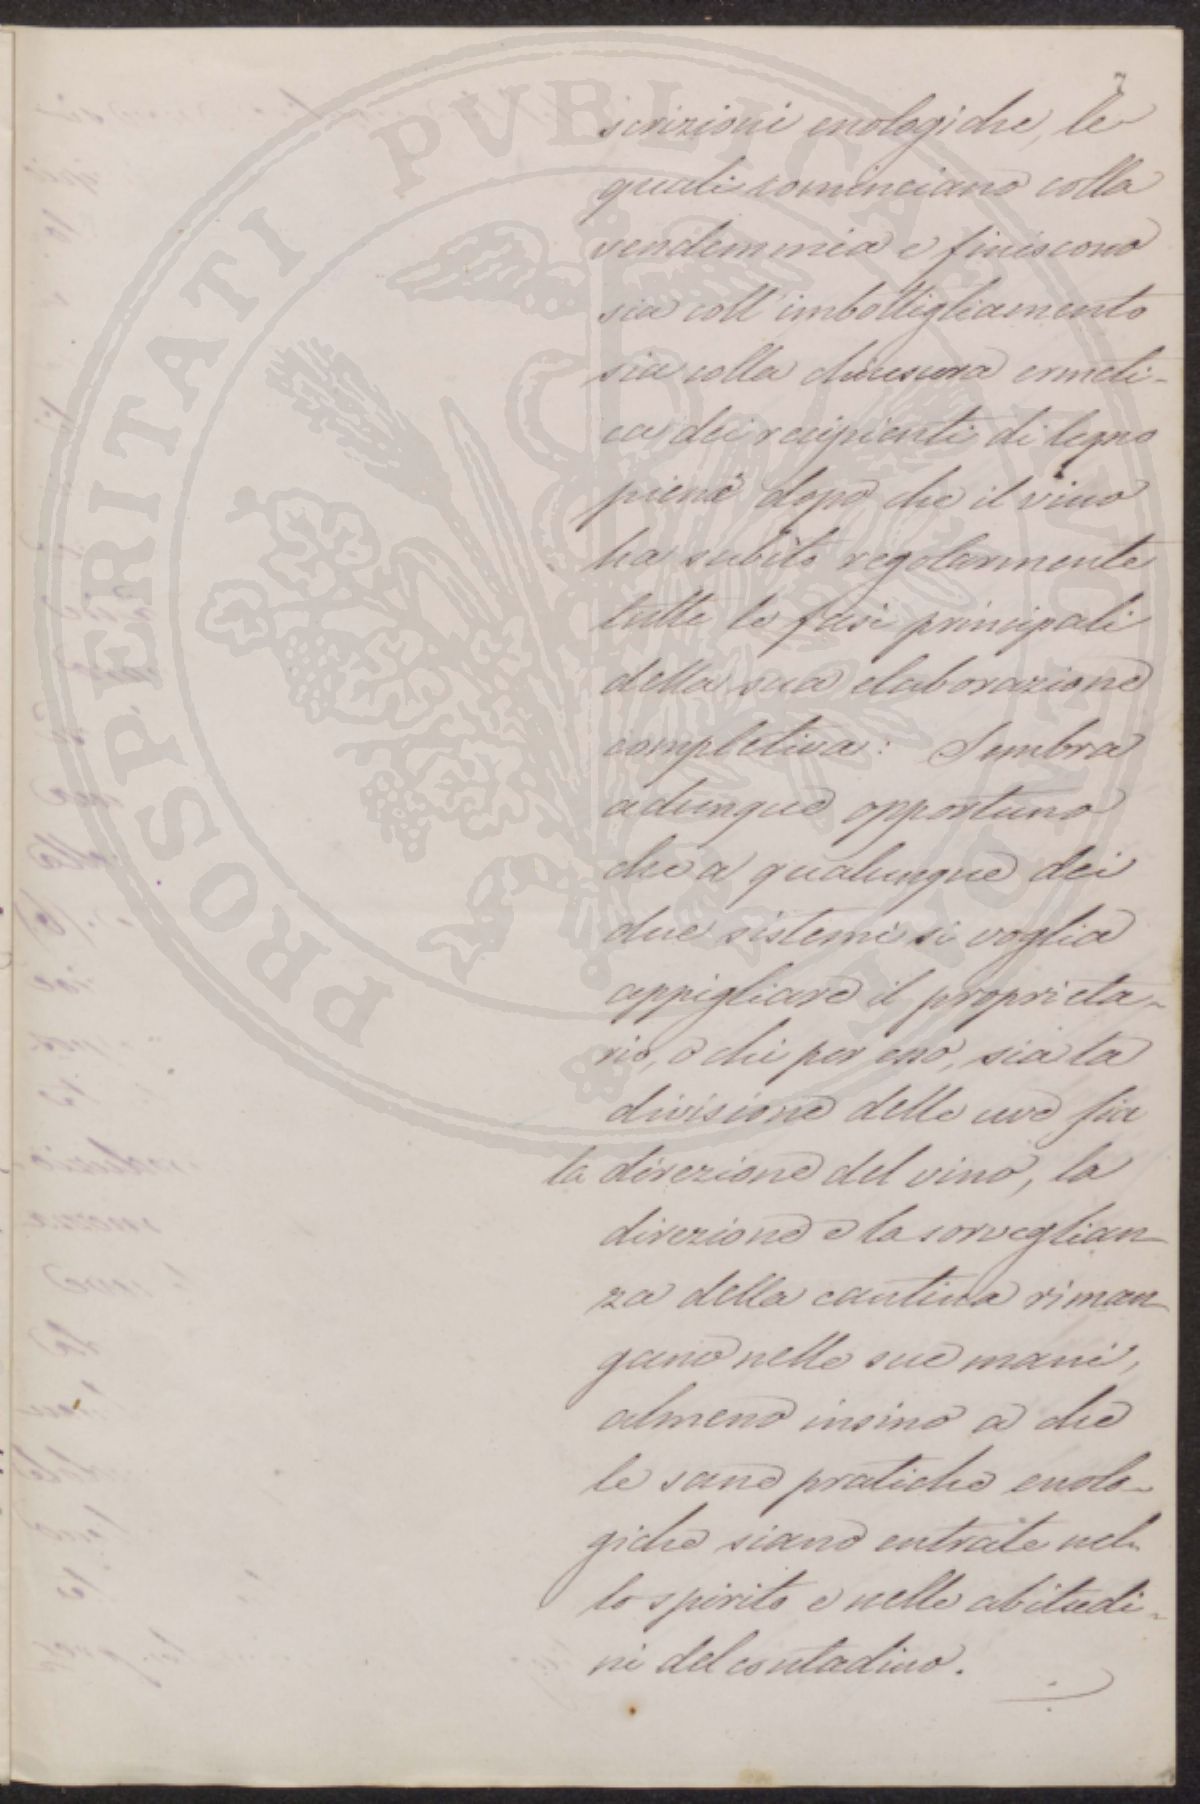 7
scrizioni enologiche, le
quali cominciano colla
vendemmia e finiscono
sia coll'imbottigliamento
sia colla chiusura ermeti-
ca dei recipienti di legno
pieni dopo che il vino
ha subito regolarmente
tutte le fasi principali
della sua elaborazione
completiva: Sembra
adunque opportuno
che a qualunque dei
due sistemi si voglia
appigliare il proprieta-
rio, o chi per esso, sia la
divisione delle uve sia
la direzione del vino, la
direzione e la sorveglian-
za della cantina riman-
gano nelle sue mani,
almeno insino a che
le sane pratiche enolo-
giche siano entrate nel-
lo spirito e nelle abitudi-
ni del contadino.
PROSPERITATI PVBLICAE